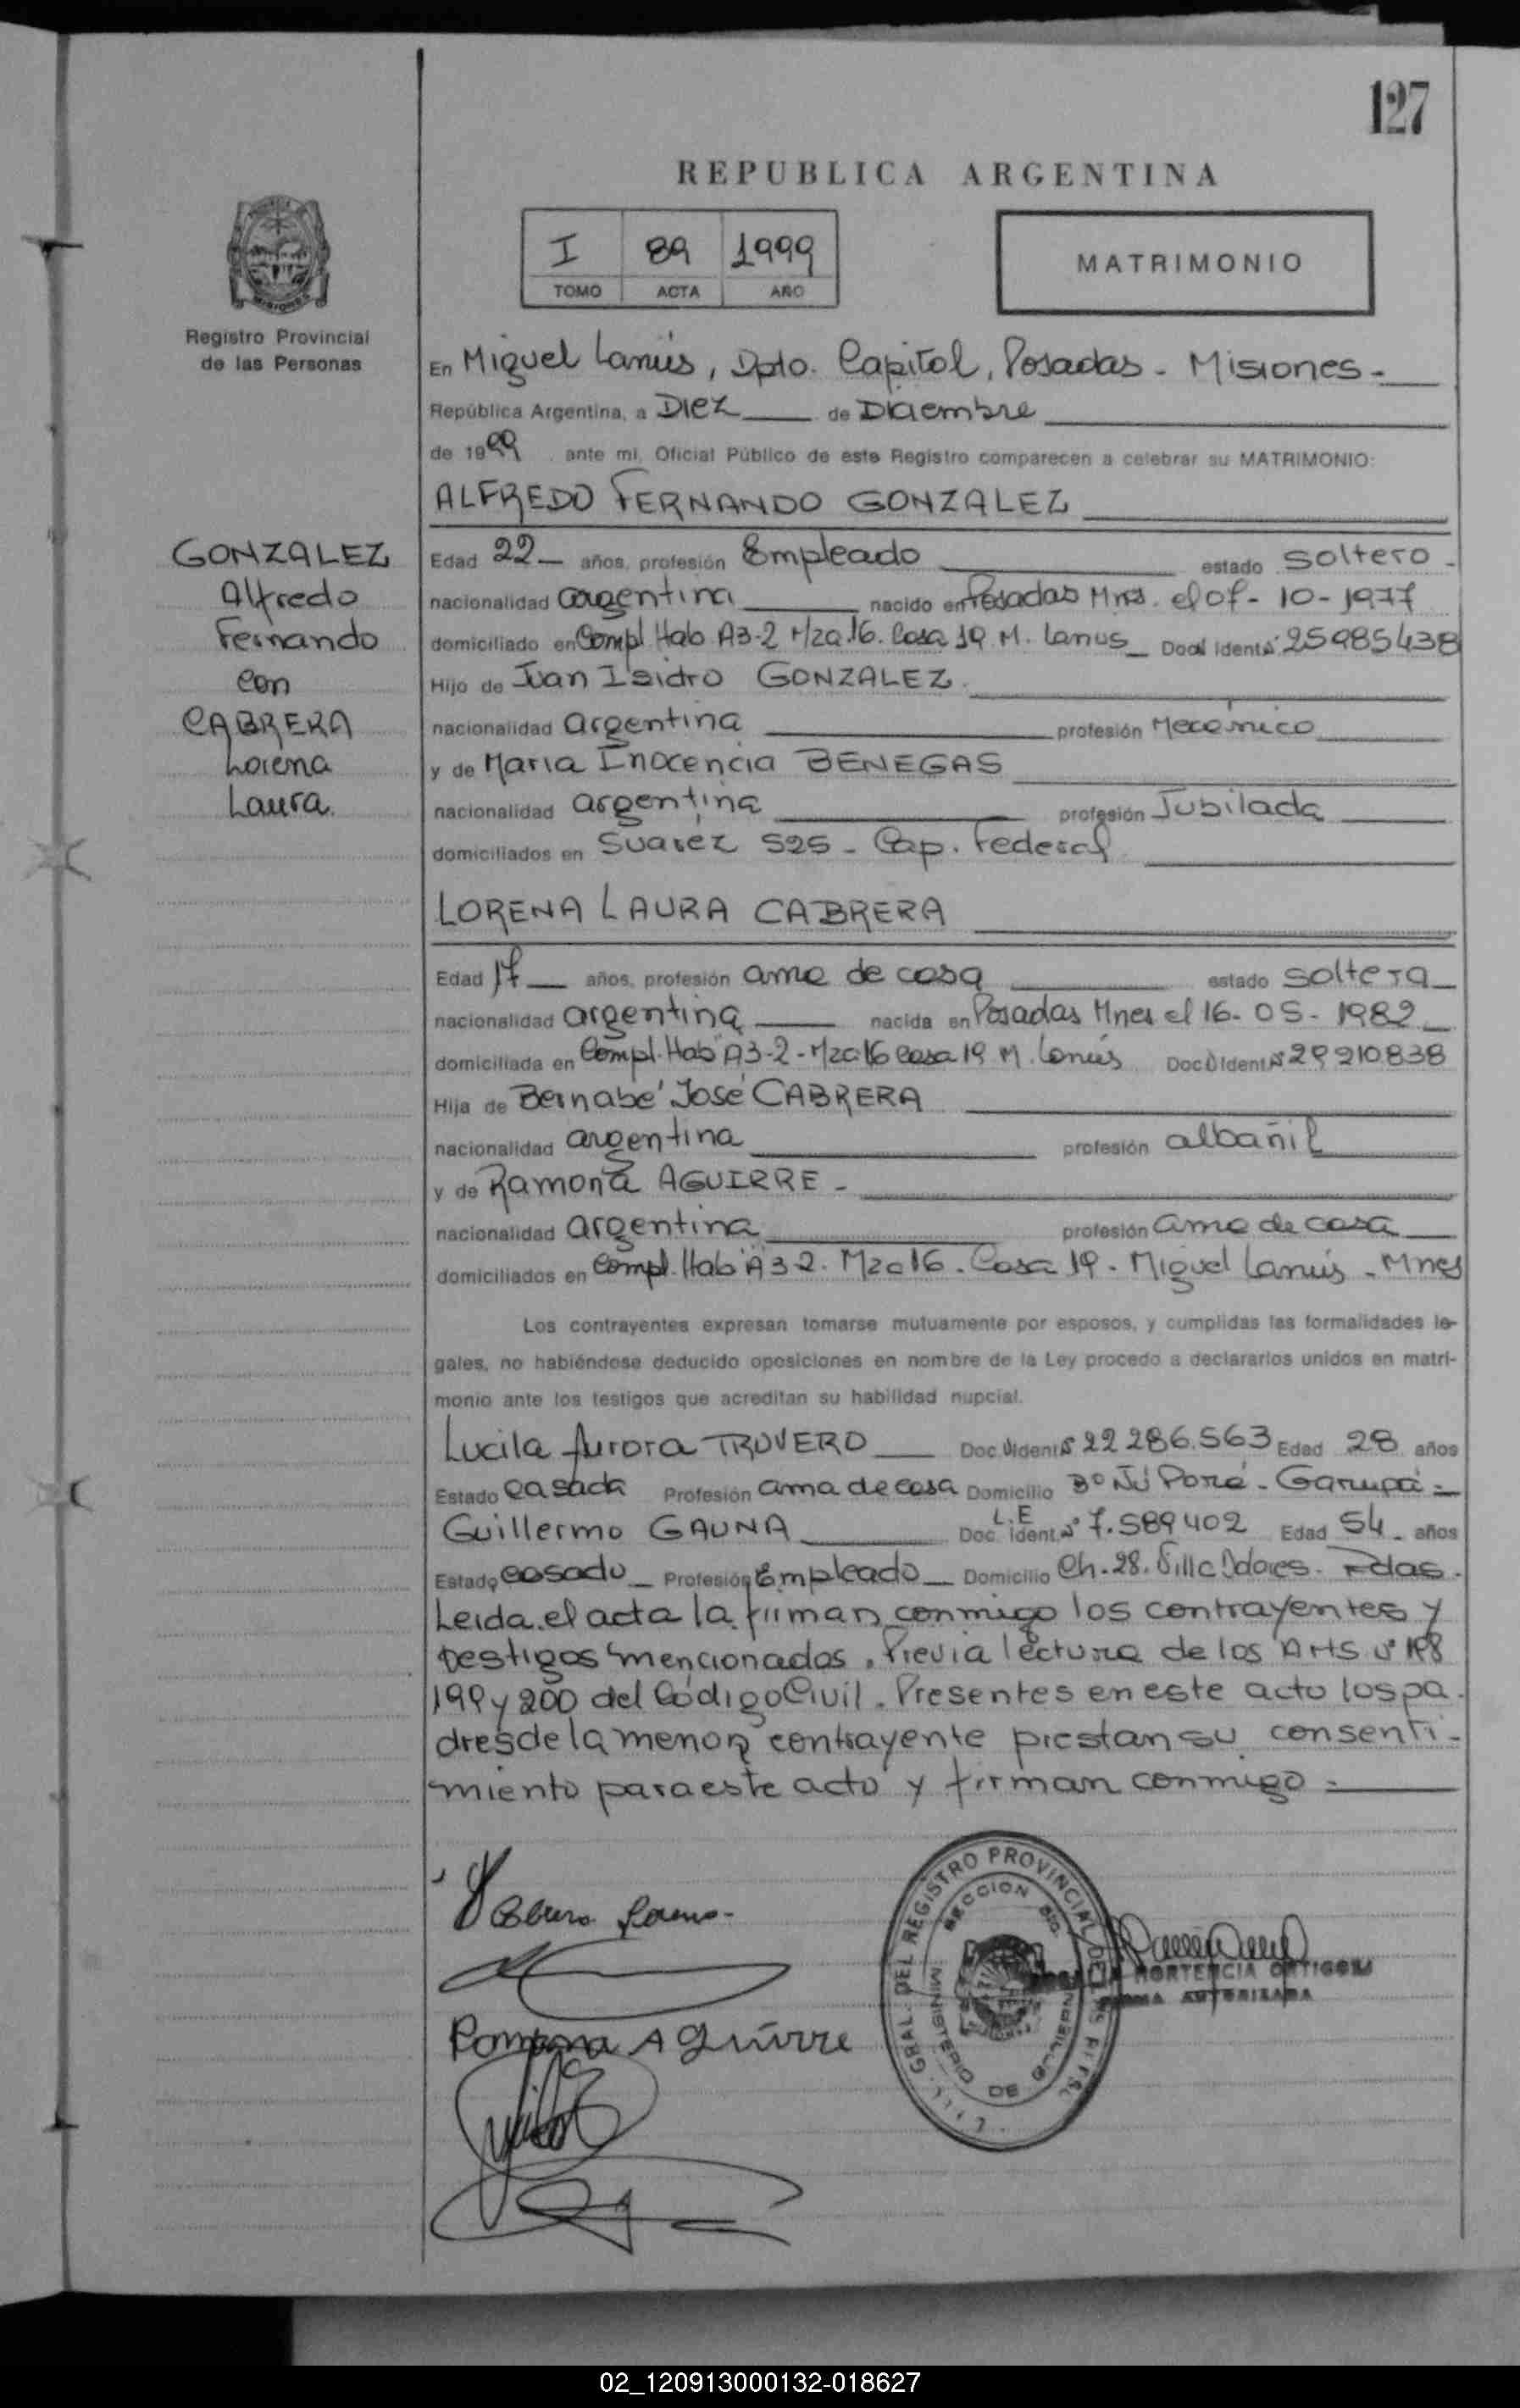 127
REPUBLICA ARGENTINA
I 89 1999
TOMO ACTA AÑO
MATRIMONIO
MISIONES
Registro Provincial
de las Personas
En Miguel Lanús, Dpto. Capital, Posadas - Misiones -
República Argentina, a Diez de Diciembre
de 1999 ante mi, Oficial Público de este Registro comparecen a celebrar su MATRIMONIO:
ALFREDO FERNANDO GONZALEZ
GONZALEZ
Alfredo
Fernando
con
CABRERA
Lorena
Laura.
Edad 22 - años, profesión Empleado estado soltero -
nacionalidad argentina nacido en Posadas Mnes. el 07 - 10 - 1977
domiciliado en Compl Hab A3-2 Mza.16. Casa 19 M. Lanus Doc. Ident. 25985438
Hijo de Juan Isidro GONZALEZ.
nacionalidad argentina profesión Mecánico
y de Maria Inocencia BENEGAS
nacionalidad argentina profesión Jubilada
domiciliados en Suarez 525 - Cap. Federal
LORENA LAURA CABRERA
Edad 17 años, profesión ama de casa estado soltera
nacionalidad argentina nacida en Posadas Mnes el 16 - 05 - 1982
domiciliada en Compl. Hab A3-2 - Mza 16 Casa 19 M. Lanús Doc Ident 29 210838
Hija de Bernabé José CABRERA
nacionalidad argentina profesión albañil
y de Ramona AGUIRRE -
nacionalidad argentina profesión ama de casa
domiciliados en Compl. Hab A 3-2. Mza 16 - Casa 19 - Miguel Lanús - Mnes
Los contrayentes expresan tomarse mutuamente por esposos, y cumplidas las formalidades le-
gales, no habiéndose deducido oposiciones en nombre de la Ley procedo a declararlos unidos en matri-
monio ante los testigos que acreditan su habilidad nupcial.
Lucila Aurora TROVERO Doc Ident 22 286.563 Edad 28 años
Estado casada Profesión ama de casa Domicilio Bº Ñú Porá - Garupá -
Guillermo GAUNA L.E Doc. Ident. Nº 7.589402 Edad 54 años
Estado casado Profesión Empleado Domicilio Ch. 28. Villa Dolores. Pdas.
Leida el acta la firman conmigo los contrayentes y
testigos mencionados. Previa lectura de los Arts Nº 198
199 y 200 del Código Civil. Presentes en este acto los pa-
dres de la menor contrayente prestan su consenti-
miento para este acto y firman conmigo -
GRAL. DEL REGISTRO PROVINCIAL DE LAS
SECCION
MINISTERIO DE GOBIERNO
Ramona Aguirre
HORTENCIA ORTIGOZA
FIRMA AUTORIZADA
02_120913000132-018627